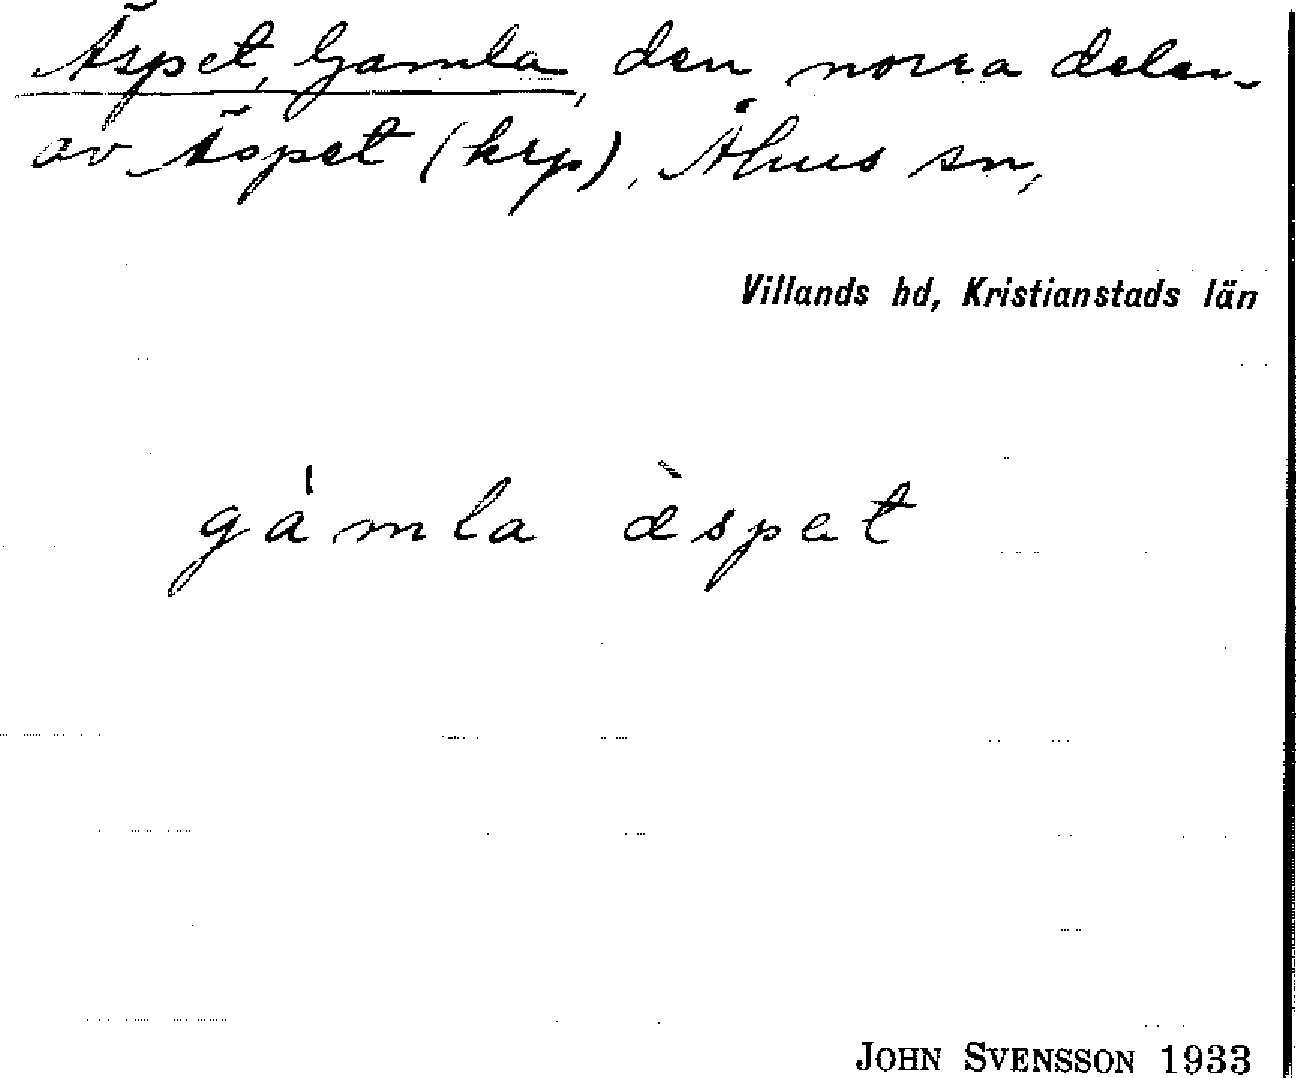 Äspet, Gamla, den norra delen
av Äspet (krp), Åhus sn,
Villands hd, Kristianstads län
gamla æ̀spet
JOHN SVENSSON 1933